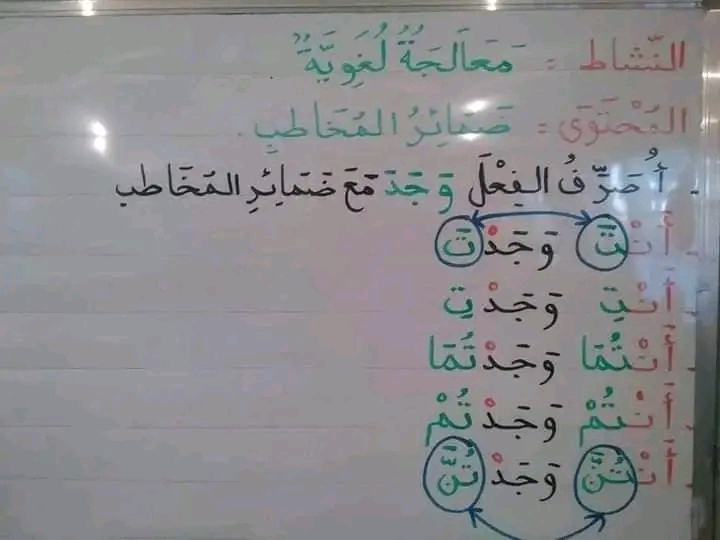 النّشاط : مَعَالَجَةٌ لُغَوِيَّةٌ
المُحْتَوَى : ضَمَائِرُ المُخَاطَبِ .
. أُصَرِّفُ الفِعْلَ وَجَدَ مَعَ ضَمَائِرِ المُخَاطب
. أَنْتَ وَجَدْتَ
. أَنْتِ وَجَدْتِ
. أَنْتُمَا وَجَدْتُمَا
. أَنْتُمْ وَجَدْتُمْ
. أَنْتُنَّ وَجَدْتُنَّ